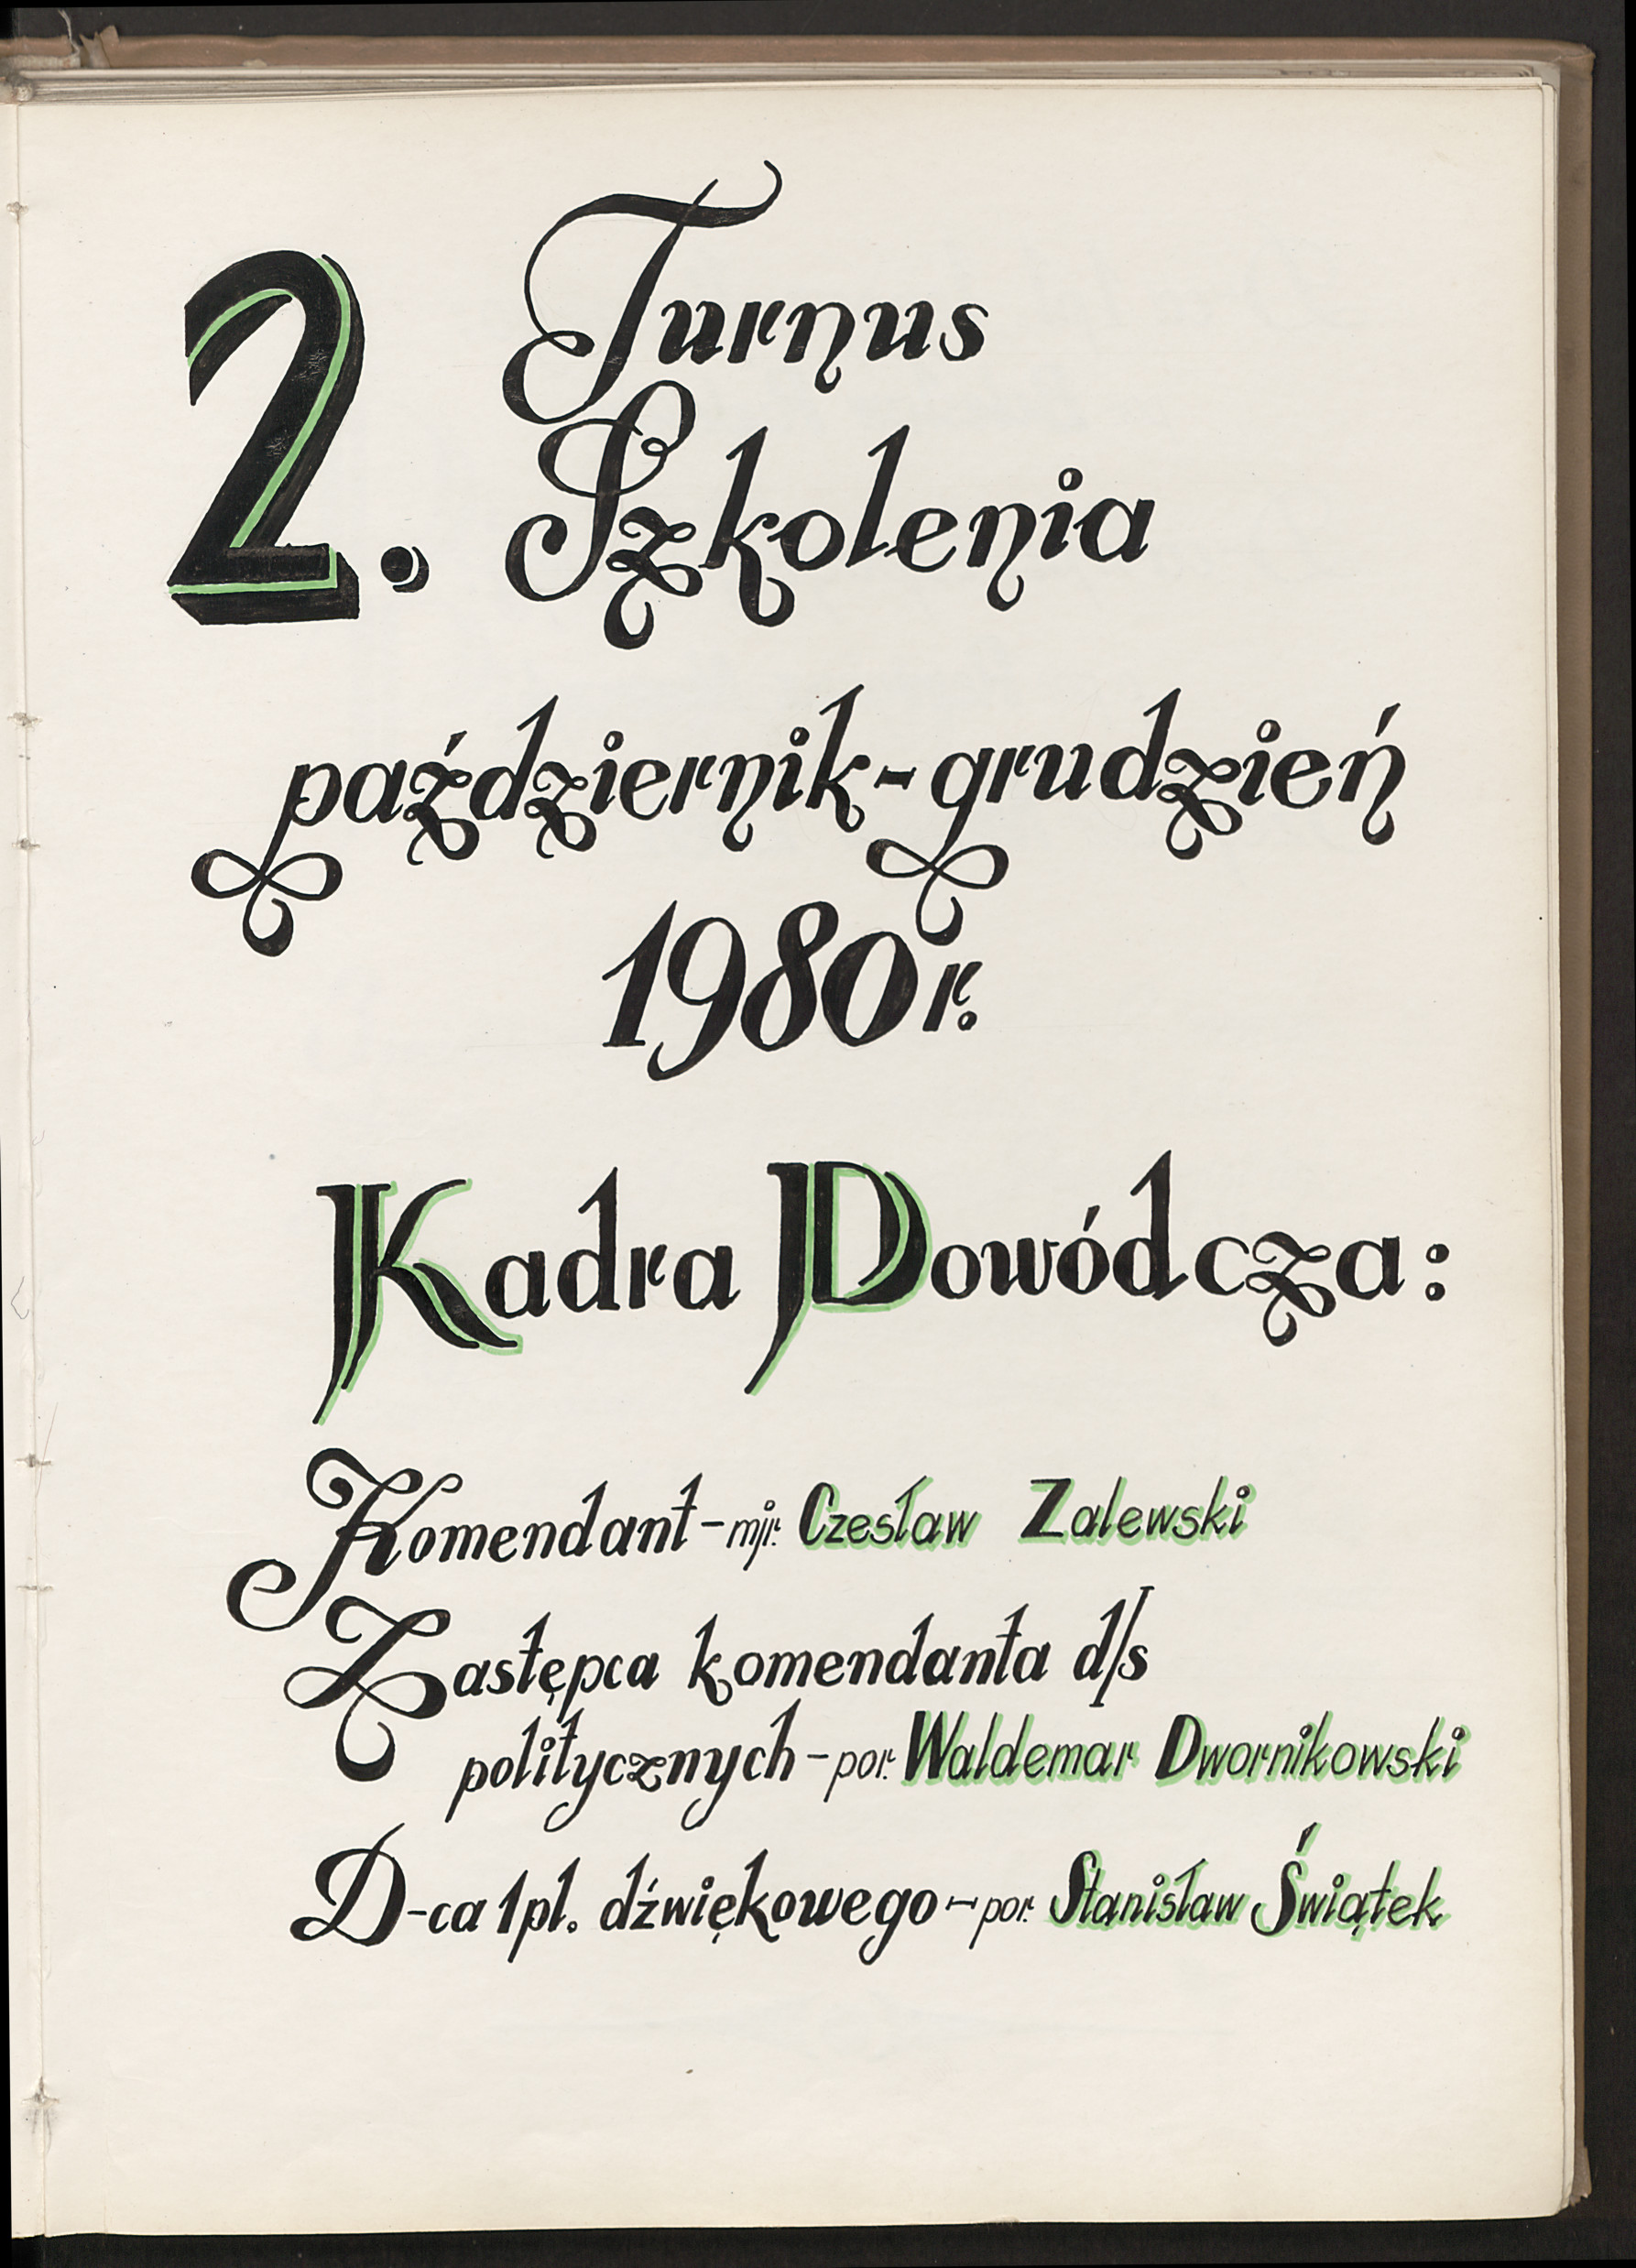 2. Turnus
Szkolenia
październik-grudzień
1980 r.
Kadra Dowódcza:
Komendant - mjr. Czesław Zalewski
Zastępca komendanta d/s
politycznych - por. Waldemar Dwornikowski
D-ca 1 pl. dźwiękowego - por. Stanisław Świątek